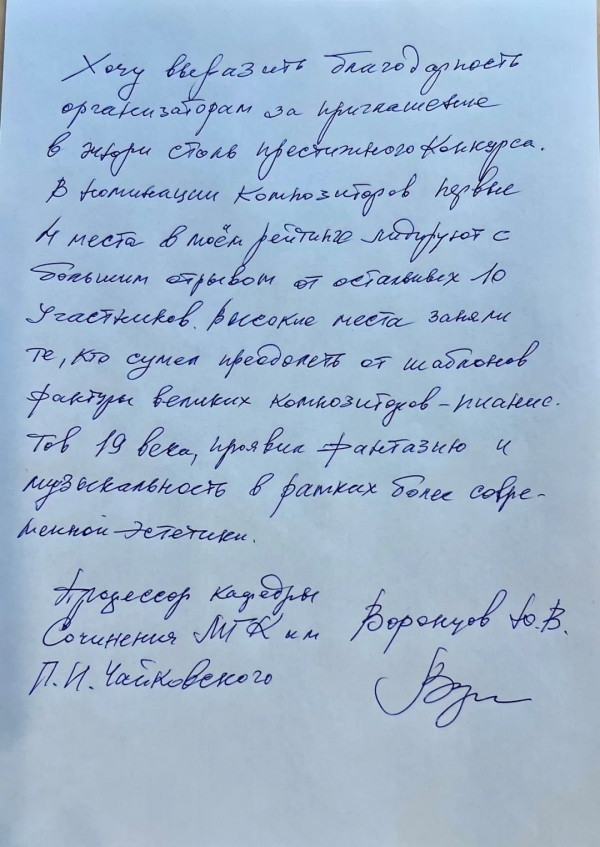 Хочу выразить благодарность
организаторам за приглашение
в жюри столь престижного Конкурса.
В номинации Композиторов первые
4 места в моём рейтинге лидируют с
большим отрывом от остальных 10
участников. Высокие места заняли
те, кто сумел преодолеть от шаблонов
фактуры великих композиторов-пианис-
тов 19 века, проявил фантазию и
музыкальность в рамках более совре-
менной эстетики.
Профессор кафедры
Сочинения МГК им
П.И. Чайковского
Воронцов Ю.В.